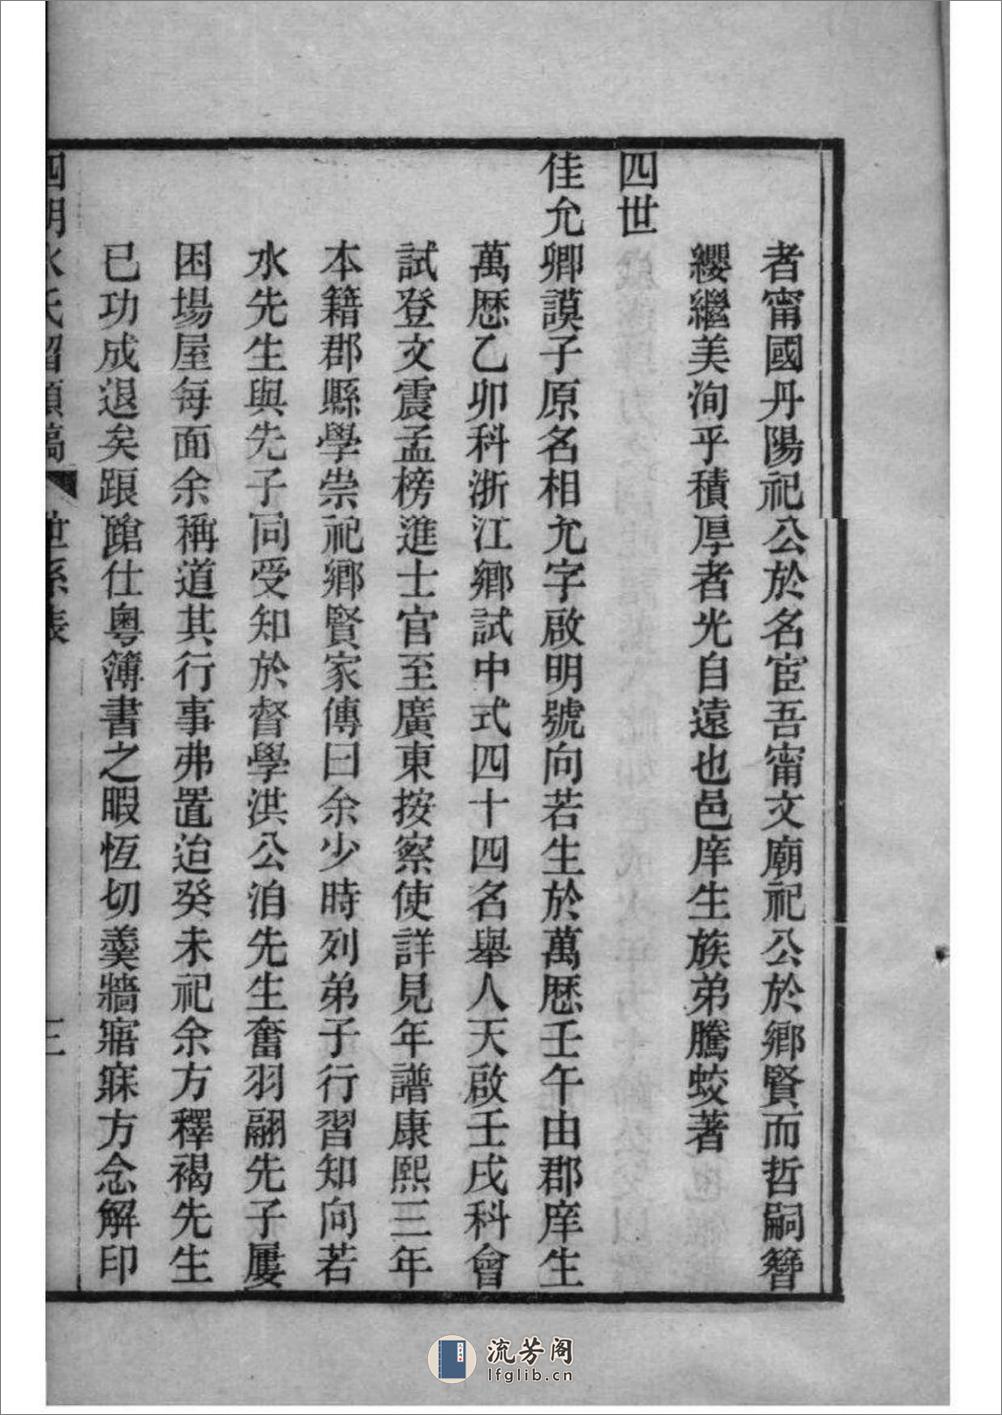 者甯國丹陽祀公於名宦吾甯文廟祀公於鄉賢而哲嗣簪
纓繼美洵乎積厚者光自遠也邑庠生族弟騰蛟著
四世
佳允卿謨子原名相允字啟明號向若生於萬厯壬午由郡庠生
萬厯乙卯科浙江鄉試中式四十四名舉人天啟壬戌科會
試登文震孟榜進士官至廣東按察使詳見年譜康熙三年
本籍郡縣學崇祀鄉賢家傳曰余少時列弟子行習知向若
水先生與先子同受知於督學洪公洎先生奮羽翮先子屢
困場屋每面余稱道其行事弗置迨癸未祀余方釋褐先生
已功成退矣踉蹌仕粵簿書之暇恆切羹牆寤寐方念解印
四明水氏留碩稿 世系表 三
流芳阁
lfglib.cn